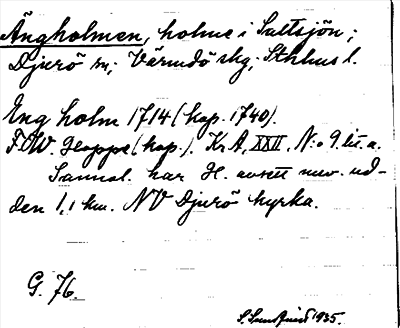 Ängholmen, holme i Saltsjön;
Djurö sn; Värmdö skg, Sthlms l.
Eng holm 1714 (kop. 1740).
F.O.W. Hoppe (kop.). Kr. A. XXII, N:o 9. lit. a.
Sannol. har H. avsett nuv. ud-
den 1,1 km. NV Djurö kyrka.
G. 76.
1935.